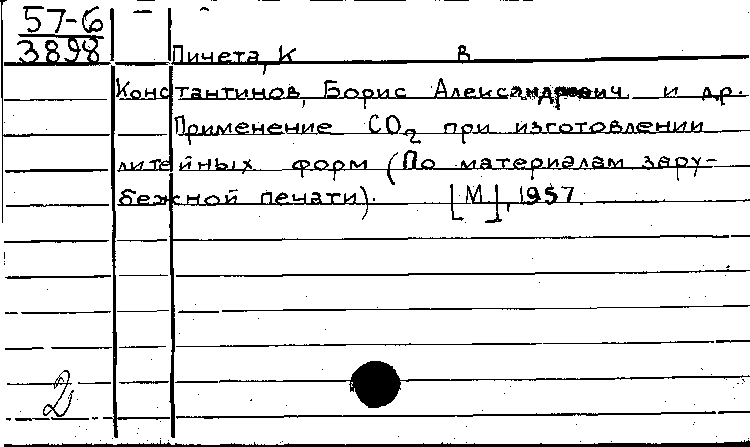 57-6
3898
Пичета, К В
Константинов, Борис Александрович и др.
Применение CO₂ при изготовлении
литейных форм (По материалам зару-
бежной печати). [М], 1957.
2